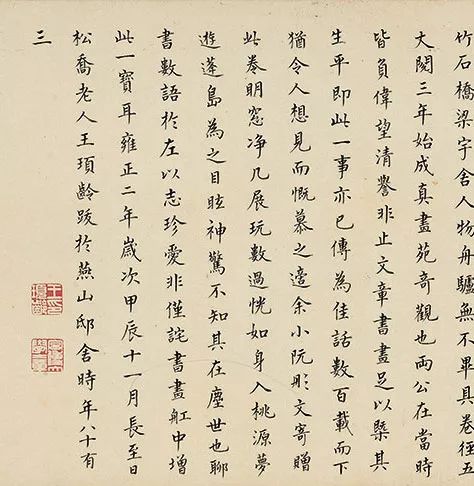 竹石橋梁宇舍人物舟驢無不畢具卷徑五
大閱三年始成真畫苑奇觀也兩公在當時
皆負偉望清譽非止文章書畫足以槩其
生平即此一事亦已傳為佳話數百載而下
猶令人想見而慨慕之適余小阮彤文寄贈
此卷明窓淨几展玩數過恍如身入桃源夢
遊蓬島為之目眩神驚不知其在塵世也聊
書數語於左以志珍愛非僅詫書畫舡中增
此一寶耳雍正二年歲次甲辰十一月長至日
松喬老人王頊齡跋於燕山邸舍時年八十有
三